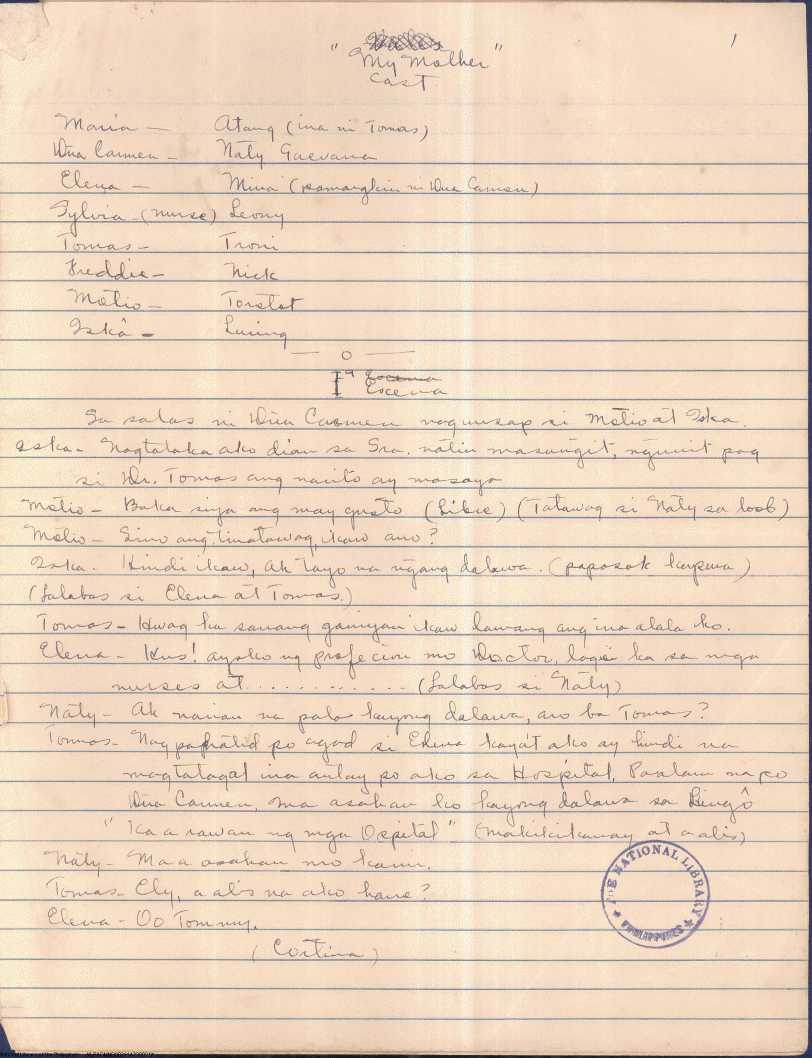 1
"My Mother"
Cast
Maria — Atang (ina ni Tomas)
Dña Carmen - Naty
Elena — Mina (pamangkin ni Dña Carmen)
Sylvia - (nurse) Leony
Tomas - Troni
Freddie - Nick
Motio —
Iskâ - Luring
— o —
I a Escena
Escena
Sa salas ni Dña Carmen naguusap si Motio at Iska.
Iska - Nagtataka ako dian sa Sra. natin masungit, ngunit pag
si Dr. Tomas ang narito ay masaya
Motio - Baka siya ang may gusto (Libre) (Tatawag si Naty sa loob)
Motio - Sino ang tinatawag, ikaw ano?
Iska. Hindi ikaw, Ah tayo na ngang dalawa. (papasok kapwa)
(Lalabas si Elena at Tomas.)
Tomas - Hwag ka sanang ganiyan ikaw lamang ang ina alala ko.
Elena - Hus! ayoko ng profecion mo Doctor, lagi ka sa mga
nurses at............ (Lalabas si Naty)
Naty - Ah narian na pala kayong dalawa, ano ba Tomas?
Tomas - Nagpahatid po agad si Elena kaya't ako ay hindi na
magtatagal ina antay po ako sa Hospital, Paalam na po
Dña Carmen, ma asahan ko kayong dalawa sa Lingô
"Ka a rawan ng mga Ospital" (makikikamay at a alis)
Naty - Ma a asahan mo kami.
Tomas - Ely, a alis na ako hane?
Elena - Oo Tommy.
(Cortina)
THE NATIONAL LIBRARY
PHILIPPINES